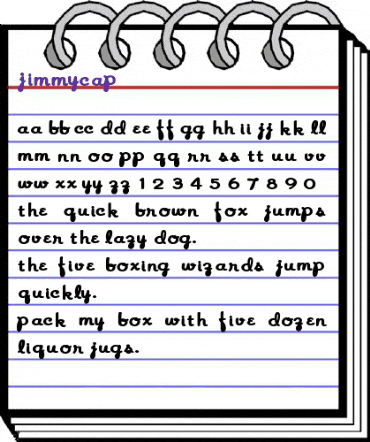 jimmycap
aa bb cc dd ee ff gg hh ii jj kk ll
mm nn oo pp qq rr ss tt uu vv
ww xx yy zz 1 2 3 4 5 6 7 8 9 0
the quick brown fox jumps
over the lazy dog.
the five boxing wizards jump
quickly.
pack my box with five dozen
liquor jugs.